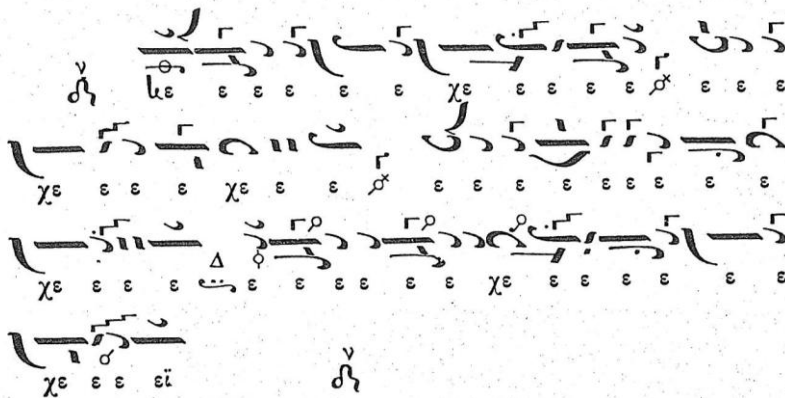 ν κε ε ε ε ε ε χε ε ε ε ε ε ε ε
χε ε ε ε χε ε ε ε ε ε ε ε ε ε ε ε
χε ε ε ε Δ ε ε ε ε ε ε ε χε ε ε ε ε ε ε
χε ε ε εϊ ν